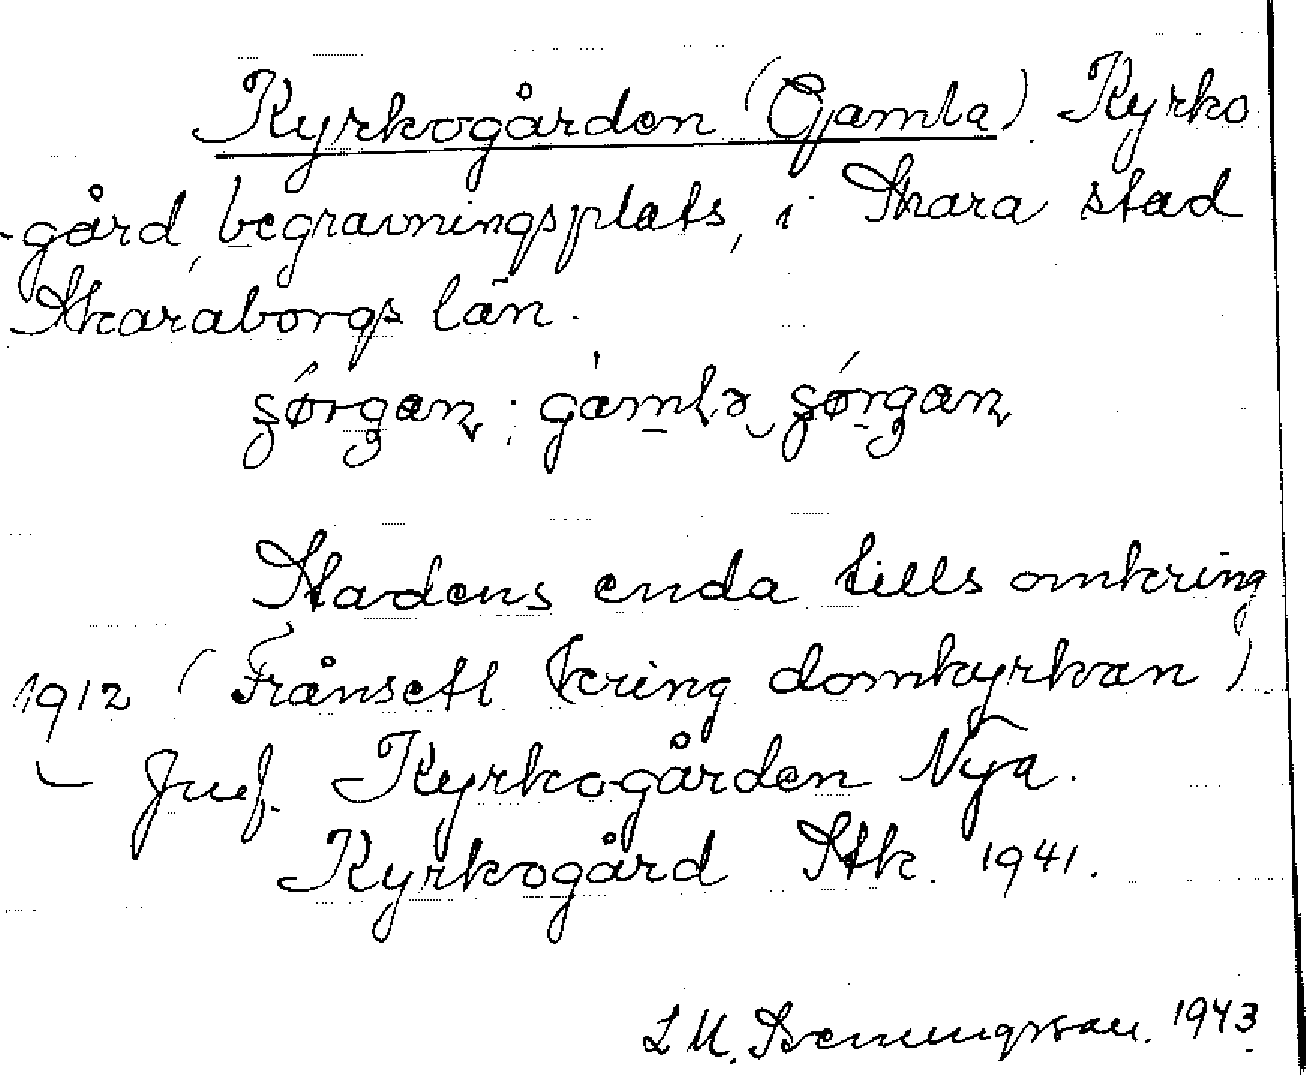 Kyrkogården (Gamla) Kyrko
-gård, begravningsplats, i Skara stad
Skaraborgs län.
Stadens enda tills omkring
1912 (Frånsett kring domkyrkan)
- Jmf. Kyrkogården Nya.
Kyrkogård Stk. 1941.
1943